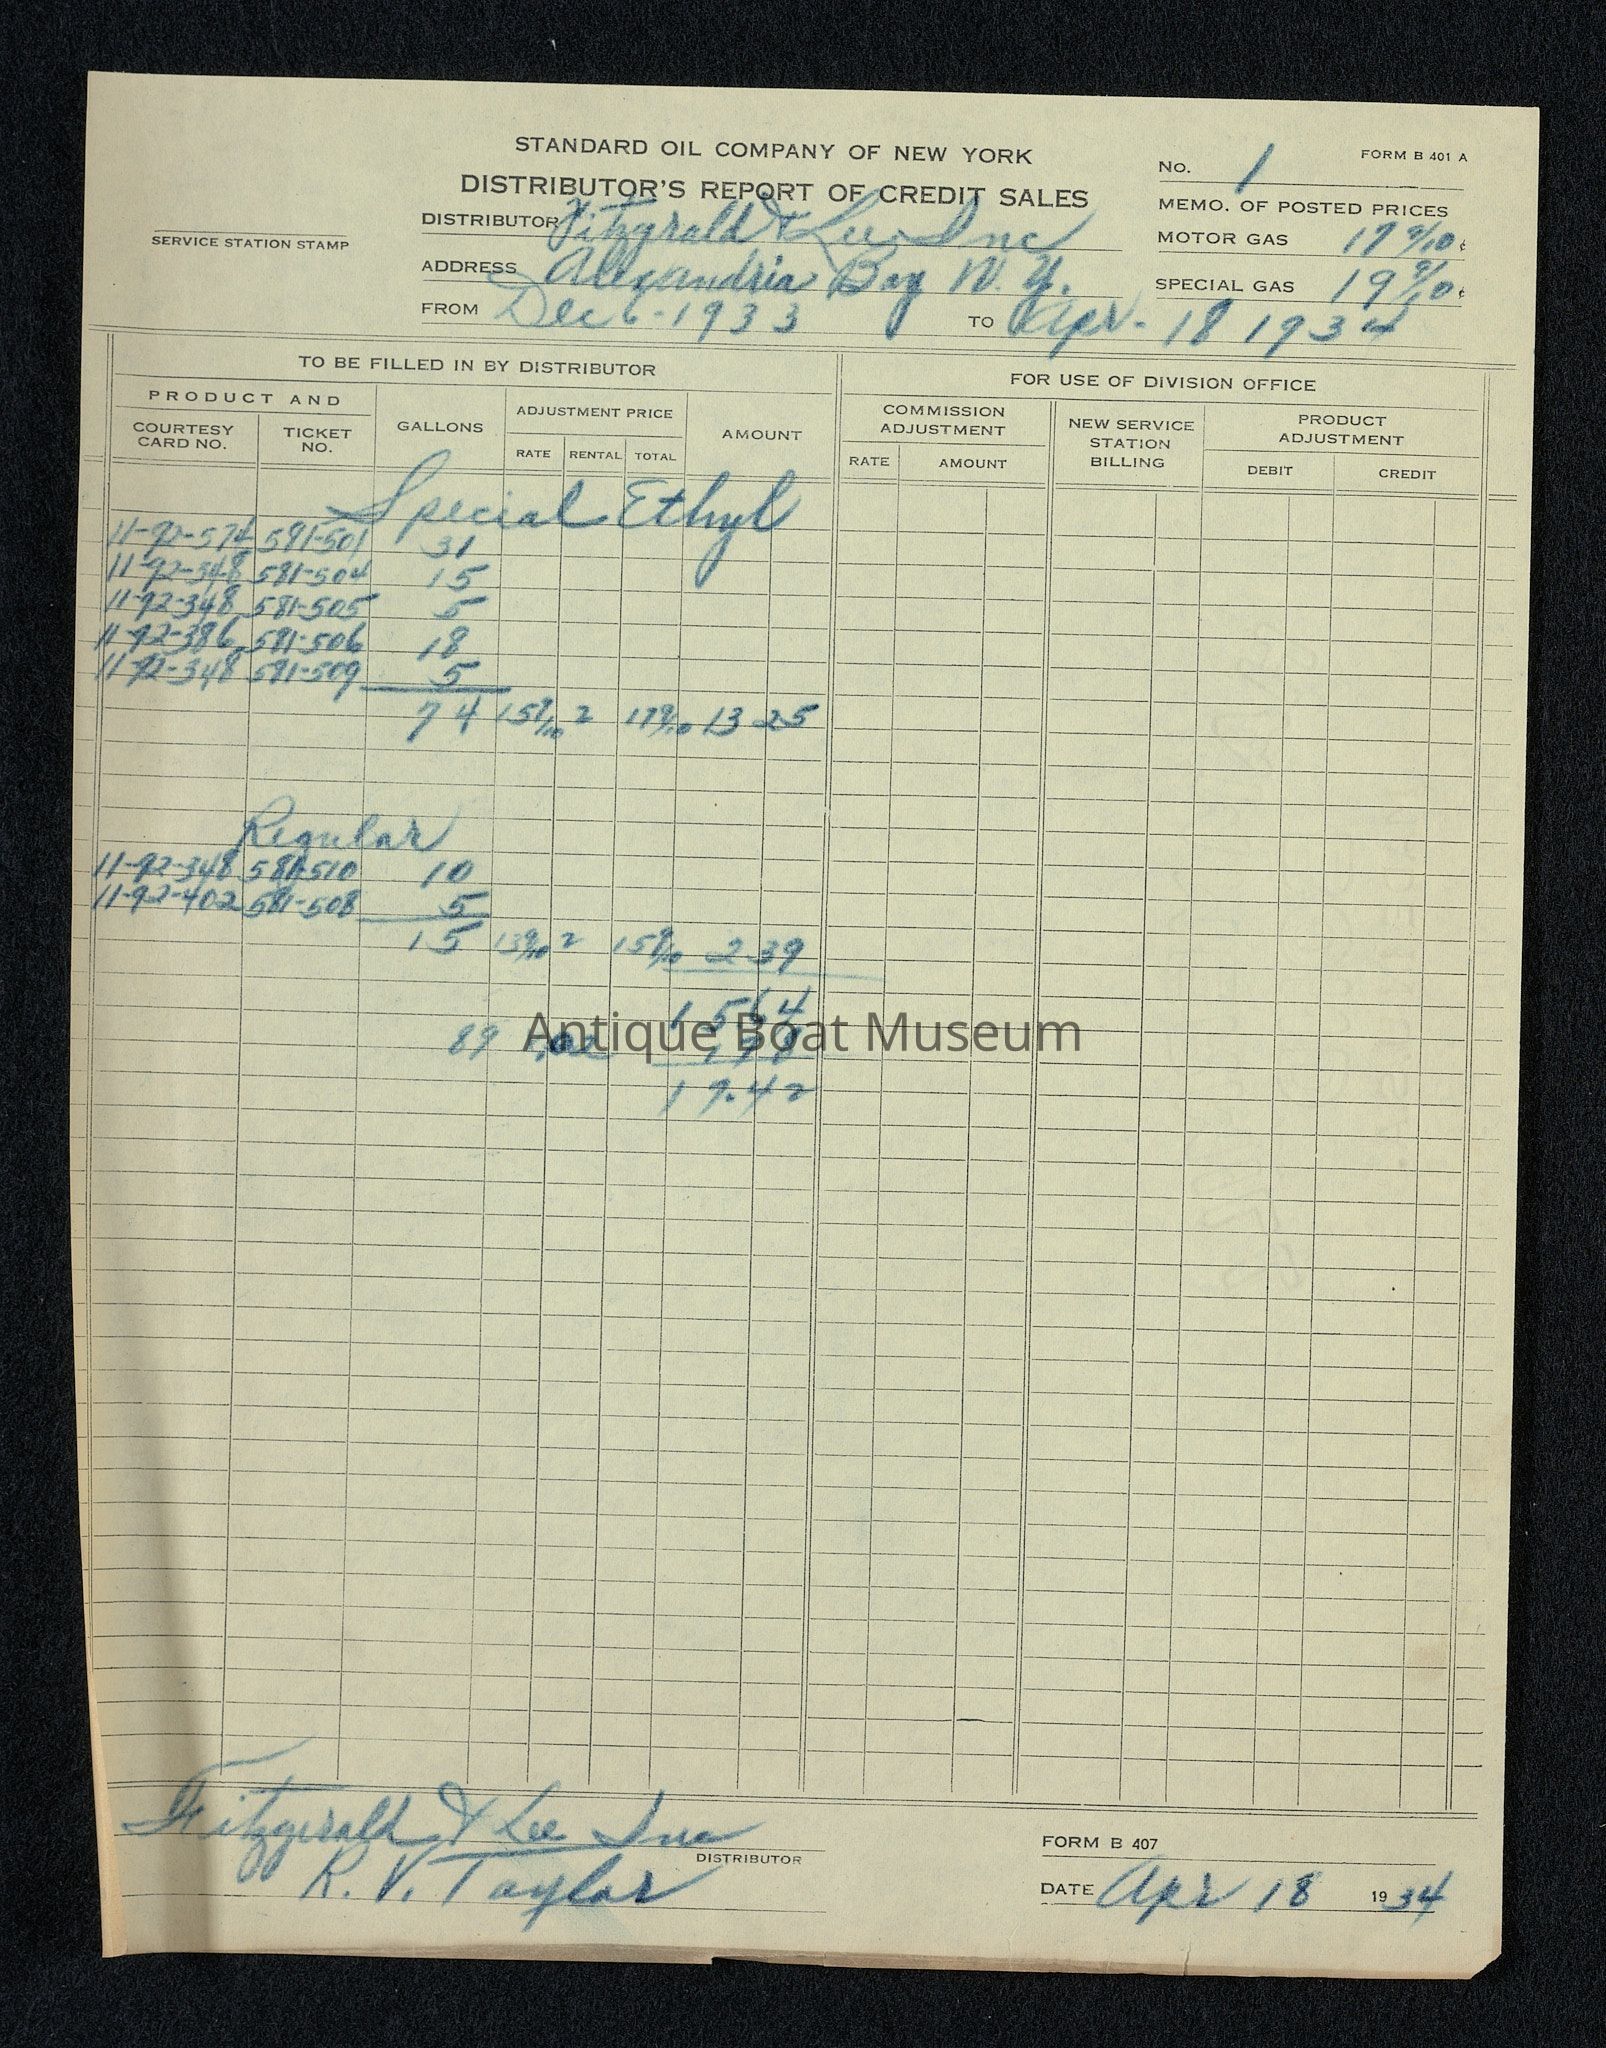 STANDARD OIL COMPANY OF NEW YORK
FORM B 401 A
DISTRIBUTOR'S REPORT OF CREDIT SALES
No. 1
MEMO. OF POSTED PRICES
DISTRIBUTOR Fitzgrald & Lee, Inc
MOTOR GAS 17 9/10 ¢
SERVICE STATION STAMP
ADDRESS Alexandria Bay N. Y.
SPECIAL GAS 19 9/10 ¢
FROM Dec 6-1933 TO Apr. 18 1934
TO BE FILLED IN BY DISTRIBUTOR
FOR USE OF DIVISION OFFICE
PRODUCT AND
COURTESY CARD NO.
TICKET NO.
GALLONS
ADJUSTMENT PRICE
RATE RENTAL TOTAL
AMOUNT
COMMISSION ADJUSTMENT
RATE AMOUNT
NEW SERVICE STATION BILLING
PRODUCT ADJUSTMENT
DEBIT CREDIT
Special Ethyl
11-92-574 581-501 31
11-92-348 581-504 15
11-92-348 581-505 5
11-92-386 581-506 18
11-92-348 581-509 5
74 15 9/10 2 17 9/10 13 25
Regular
11-92-348 581-510 10
11-92-402 581-508 5
15 13 9/10 2 15 9/10 2.39
15 64
89 .02 1.78
17.42
Antique Boat Museum
Fitzgerald & Lee Inc
DISTRIBUTOR
R. V. Taylor
FORM B 407
DATE Apr 18 1934